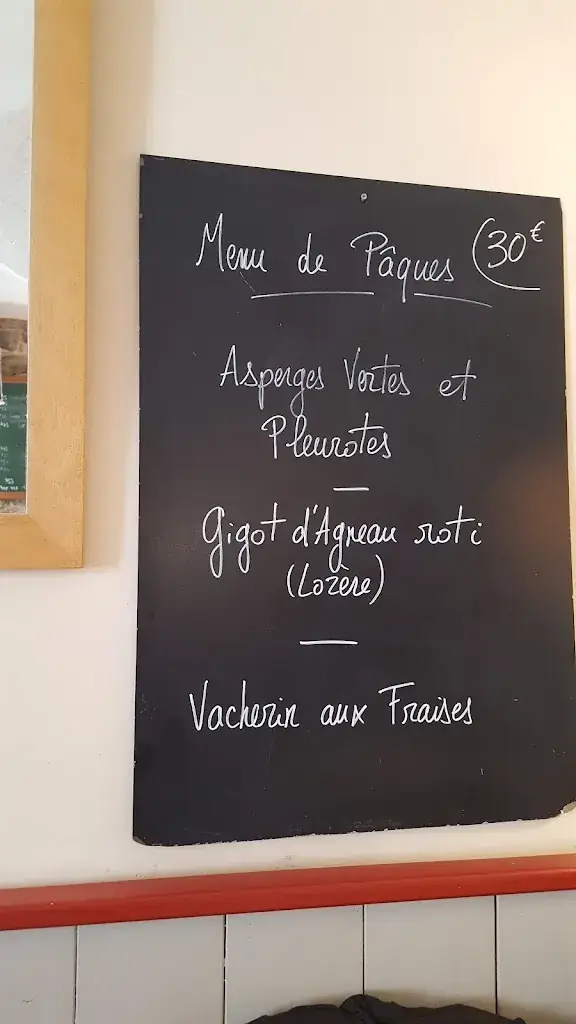 Menu de Pâques 30€
Asperges Vertes et
Pleurotes
Gigot d'Agneau roti
(Lozère)
Vacherin aux Fraises